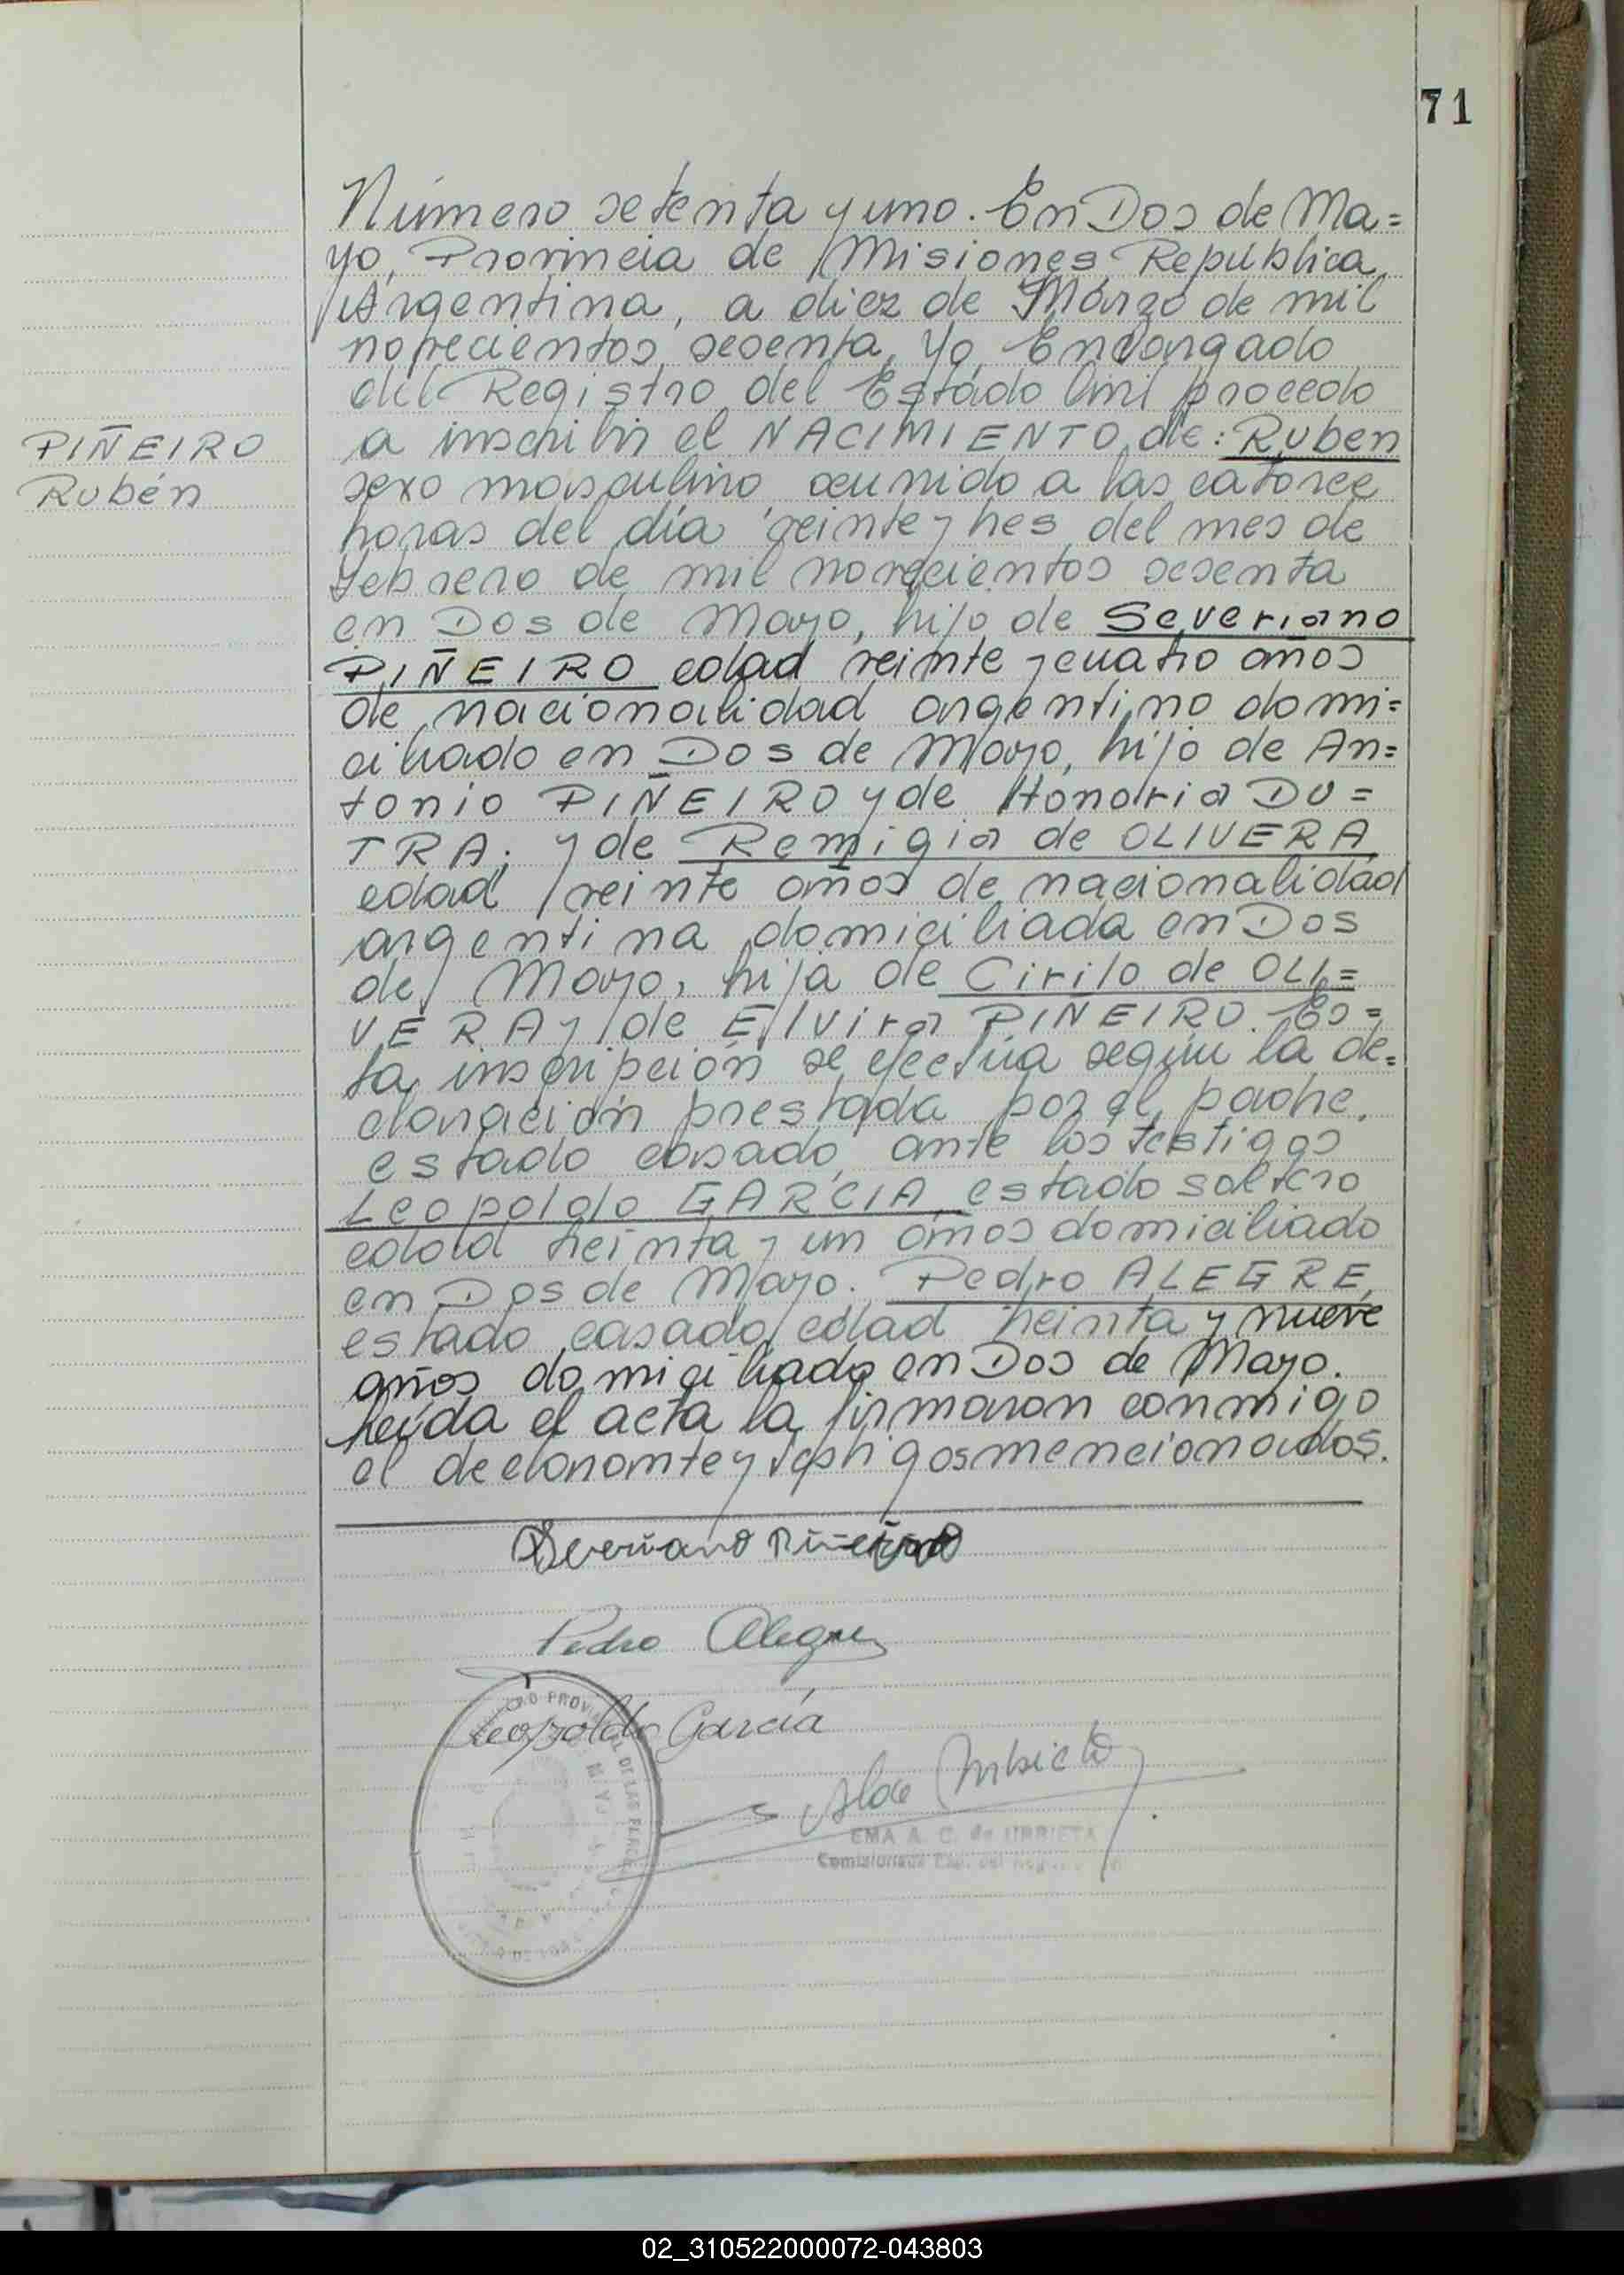 71
Número setenta y uno. En Dos de Ma=
yo, Provincia de Misiones, República
Argentina, a diez de Marzo de mil
novecientos sesenta, Yo, Encargado
del Registro del Estado Civil procedo
a inscribir el NACIMIENTO de: Ruben
PIÑEIRO
Rubén
sexo masculino ocurrido a las catorce
horas del día veinte y tres del mes de
Febrero de mil novecientos sesenta
en Dos de Mayo, hijo de Severiano
PIÑEIRO edad veinte y cuatro años
de nacionalidad argentino domi=
ciliado en Dos de Mayo, hijo de An=
tonio PIÑEIRO y de Honoria DU=
TRA; y de Remigia de OLIVERA
edad veinte años de nacionalidad
argentina domiciliada en Dos
de Mayo, hija de Cirilo de OLI=
VERA y de Elvira PIÑEIRO. Es=
ta inscripción se efectúa según la de=
claración prestada por el padre,
estado casado, ante los testigos
Leopoldo GARCIA estado soltero
edad treinta y un años domiciliado
en Dos de Mayo. Pedro ALEGRE,
estado casado edad treinta y nueve
años domiciliado en Dos de Mayo.
Leída el acta la firmaron conmigo
el declarante y testigos mencionados.
Severiano Piñeiro
Pedro Alegre
Leopoldo García
EMA A. C. de URRIETA
02_310522000072-043803